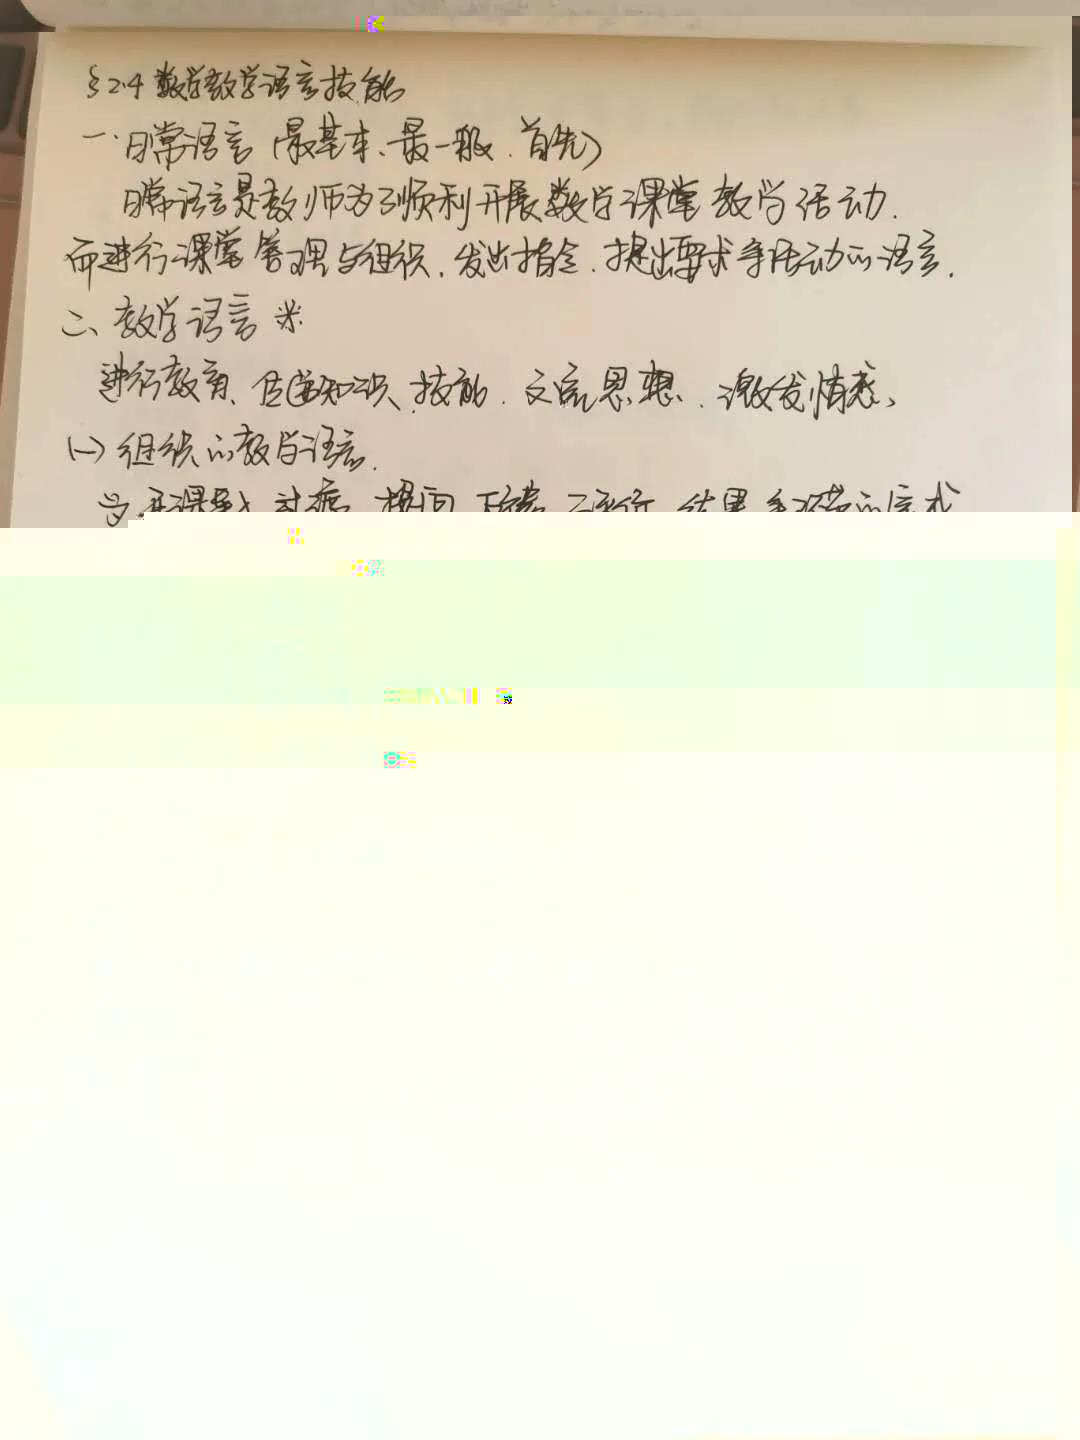 §2.4 数学教学语言技能
一、日常语言(最基本、最一般、首先)
日常语言是教师为了顺利开展数学课堂教学活动.
而进行课堂管理与组织、发出指令、提出要求等活动的语言.
二、教学语言 ※
进行教育、传递知识、技能、交流思想、激发情感、
(一) 组织的教学语言.